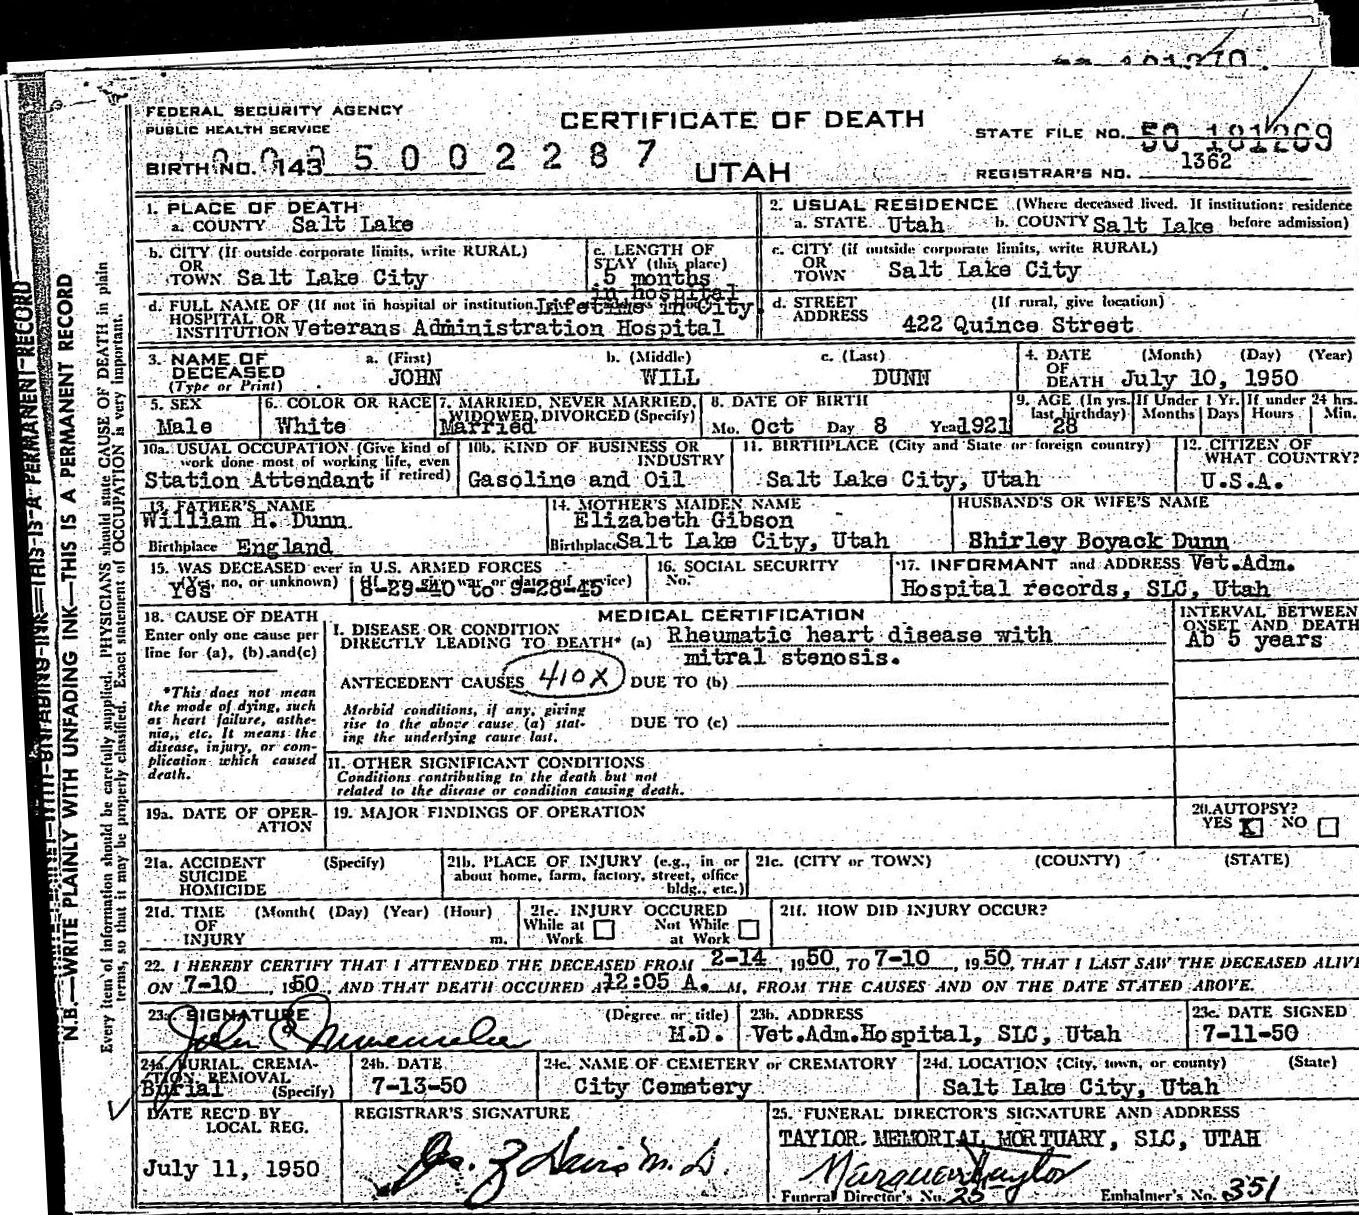 FEDERAL SECURITY AGENCY
PUBLIC HEALTH SERVICE
CERTIFICATE OF DEATH
UTAH
STATE FILE NO. 50 181269
BIRTH NO. 143 5 0 0 2 2 8 7
REGISTRAR'S NO. 1362
1. PLACE OF DEATH
a. COUNTY Salt Lake
2. USUAL RESIDENCE (Where deceased lived. If institution: residence before admission)
a. STATE Utah b. COUNTY Salt Lake
b. CITY (If outside corporate limits, write RURAL)
OR
TOWN Salt Lake City
c. LENGTH OF
STAY (this place)
5 months
in hospital
Lifetime in City
c. CITY (if outside corporate limits, write RURAL)
OR
TOWN Salt Lake City
d. FULL NAME OF (If not in hospital or institution,
HOSPITAL OR
INSTITUTION Veterans Administration Hospital
d. STREET (If rural, give location)
ADDRESS 422 Quince Street
3. NAME OF DECEASED (Type or Print)
a. (First) b. (Middle) c. (Last)
JOHN WILL DUNN
4. DATE OF DEATH (Month) (Day) (Year)
July 10, 1950
5. SEX
Male
6. COLOR OR RACE
White
7. MARRIED, NEVER MARRIED,
WIDOWED, DIVORCED (Specify)
Married
8. DATE OF BIRTH
Mo. Oct Day 8 Year 1921
9. AGE (In yrs. last birthday) If Under 1 Yr. If under 24 hrs.
Months Days Hours Min.
28
10a. USUAL OCCUPATION (Give kind of
work done most of working life, even
if retired)
Station Attendant
10b. KIND OF BUSINESS OR
INDUSTRY
Gasoline and Oil
11. BIRTHPLACE (City and State or foreign country)
Salt Lake City, Utah
12. CITIZEN OF
WHAT COUNTRY?
U.S.A.
13. FATHER'S NAME
William H. Dunn
Birthplace England
14. MOTHER'S MAIDEN NAME
Elizabeth Gibson
Birthplace Salt Lake City, Utah
HUSBAND'S OR WIFE'S NAME
Shirley Boyack Dunn
15. WAS DECEASED ever in U.S. ARMED FORCES
(Yes, no, or unknown) (If yes, give war or dates of service)
Yes 8-29-40 to 9-28-45
16. SOCIAL SECURITY
No.
17. INFORMANT and ADDRESS Vet.Adm.
Hospital records, SLC, Utah
18. CAUSE OF DEATH
Enter only one cause per
line for (a), (b) and (c)
*This does not mean
the mode of dying, such
as heart failure, asthe-
nia, etc. It means the
disease, injury, or com-
plication which caused
death.
MEDICAL CERTIFICATION
I. DISEASE OR CONDITION
DIRECTLY LEADING TO DEATH* (a) Rheumatic heart disease with
mitral stenosis.
ANTECEDENT CAUSES 410X DUE TO (b)
Morbid conditions, if any, giving
rise to the above cause (a) stat-
ing the underlying cause last.
DUE TO (c)
II. OTHER SIGNIFICANT CONDITIONS
Conditions contributing to the death but not
related to the disease or condition causing death.
INTERVAL BETWEEN
ONSET AND DEATH
Ab 5 years
19a. DATE OF OPER-
ATION
19. MAJOR FINDINGS OF OPERATION
20. AUTOPSY?
YES X NO
21a. ACCIDENT (Specify)
SUICIDE
HOMICIDE
21b. PLACE OF INJURY (e.g., in or
about home, farm, factory, street, office
bldg., etc.)
21c. (CITY or TOWN) (COUNTY) (STATE)
21d. TIME (Month( (Day) (Year) (Hour)
OF
INJURY m.
21e. INJURY OCCURED
While at Work Not While at Work
21f. HOW DID INJURY OCCUR?
22. I HEREBY CERTIFY THAT I ATTENDED THE DECEASED FROM 2-14, 1950, TO 7-10, 1950, THAT I LAST SAW THE DECEASED ALIVE
ON 7-10, 1950, AND THAT DEATH OCCURED AT 12:05 A. M, FROM THE CAUSES AND ON THE DATE STATED ABOVE.
23a. SIGNATURE (Degree or title)
M.D.
23b. ADDRESS
Vet.Adm.Hospital, SLC, Utah
23c. DATE SIGNED
7-11-50
24a. BURIAL, CREMA-
TION, REMOVAL
(Specify)
Burial
24b. DATE
7-13-50
24c. NAME OF CEMETERY or CREMATORY
City Cemetery
24d. LOCATION (City, town, or county) (State)
Salt Lake City, Utah
DATE REC'D BY
LOCAL REG.
July 11, 1950
REGISTRAR'S SIGNATURE
Davis M.D.
25. FUNERAL DIRECTOR'S SIGNATURE AND ADDRESS
TAYLOR MEMORIAL MORTUARY, SLC, UTAH
Taylor
Funeral Director's No. 25 Embalmer's No. 351
N.B.—WRITE PLAINLY WITH UNFADING INK—THIS IS A PERMANENT RECORD
Every item of information should be carefully supplied. PHYSICIANS should state CAUSE OF DEATH in plain
terms, so that it may be properly classified. Exact statement of OCCUPATION is very important.